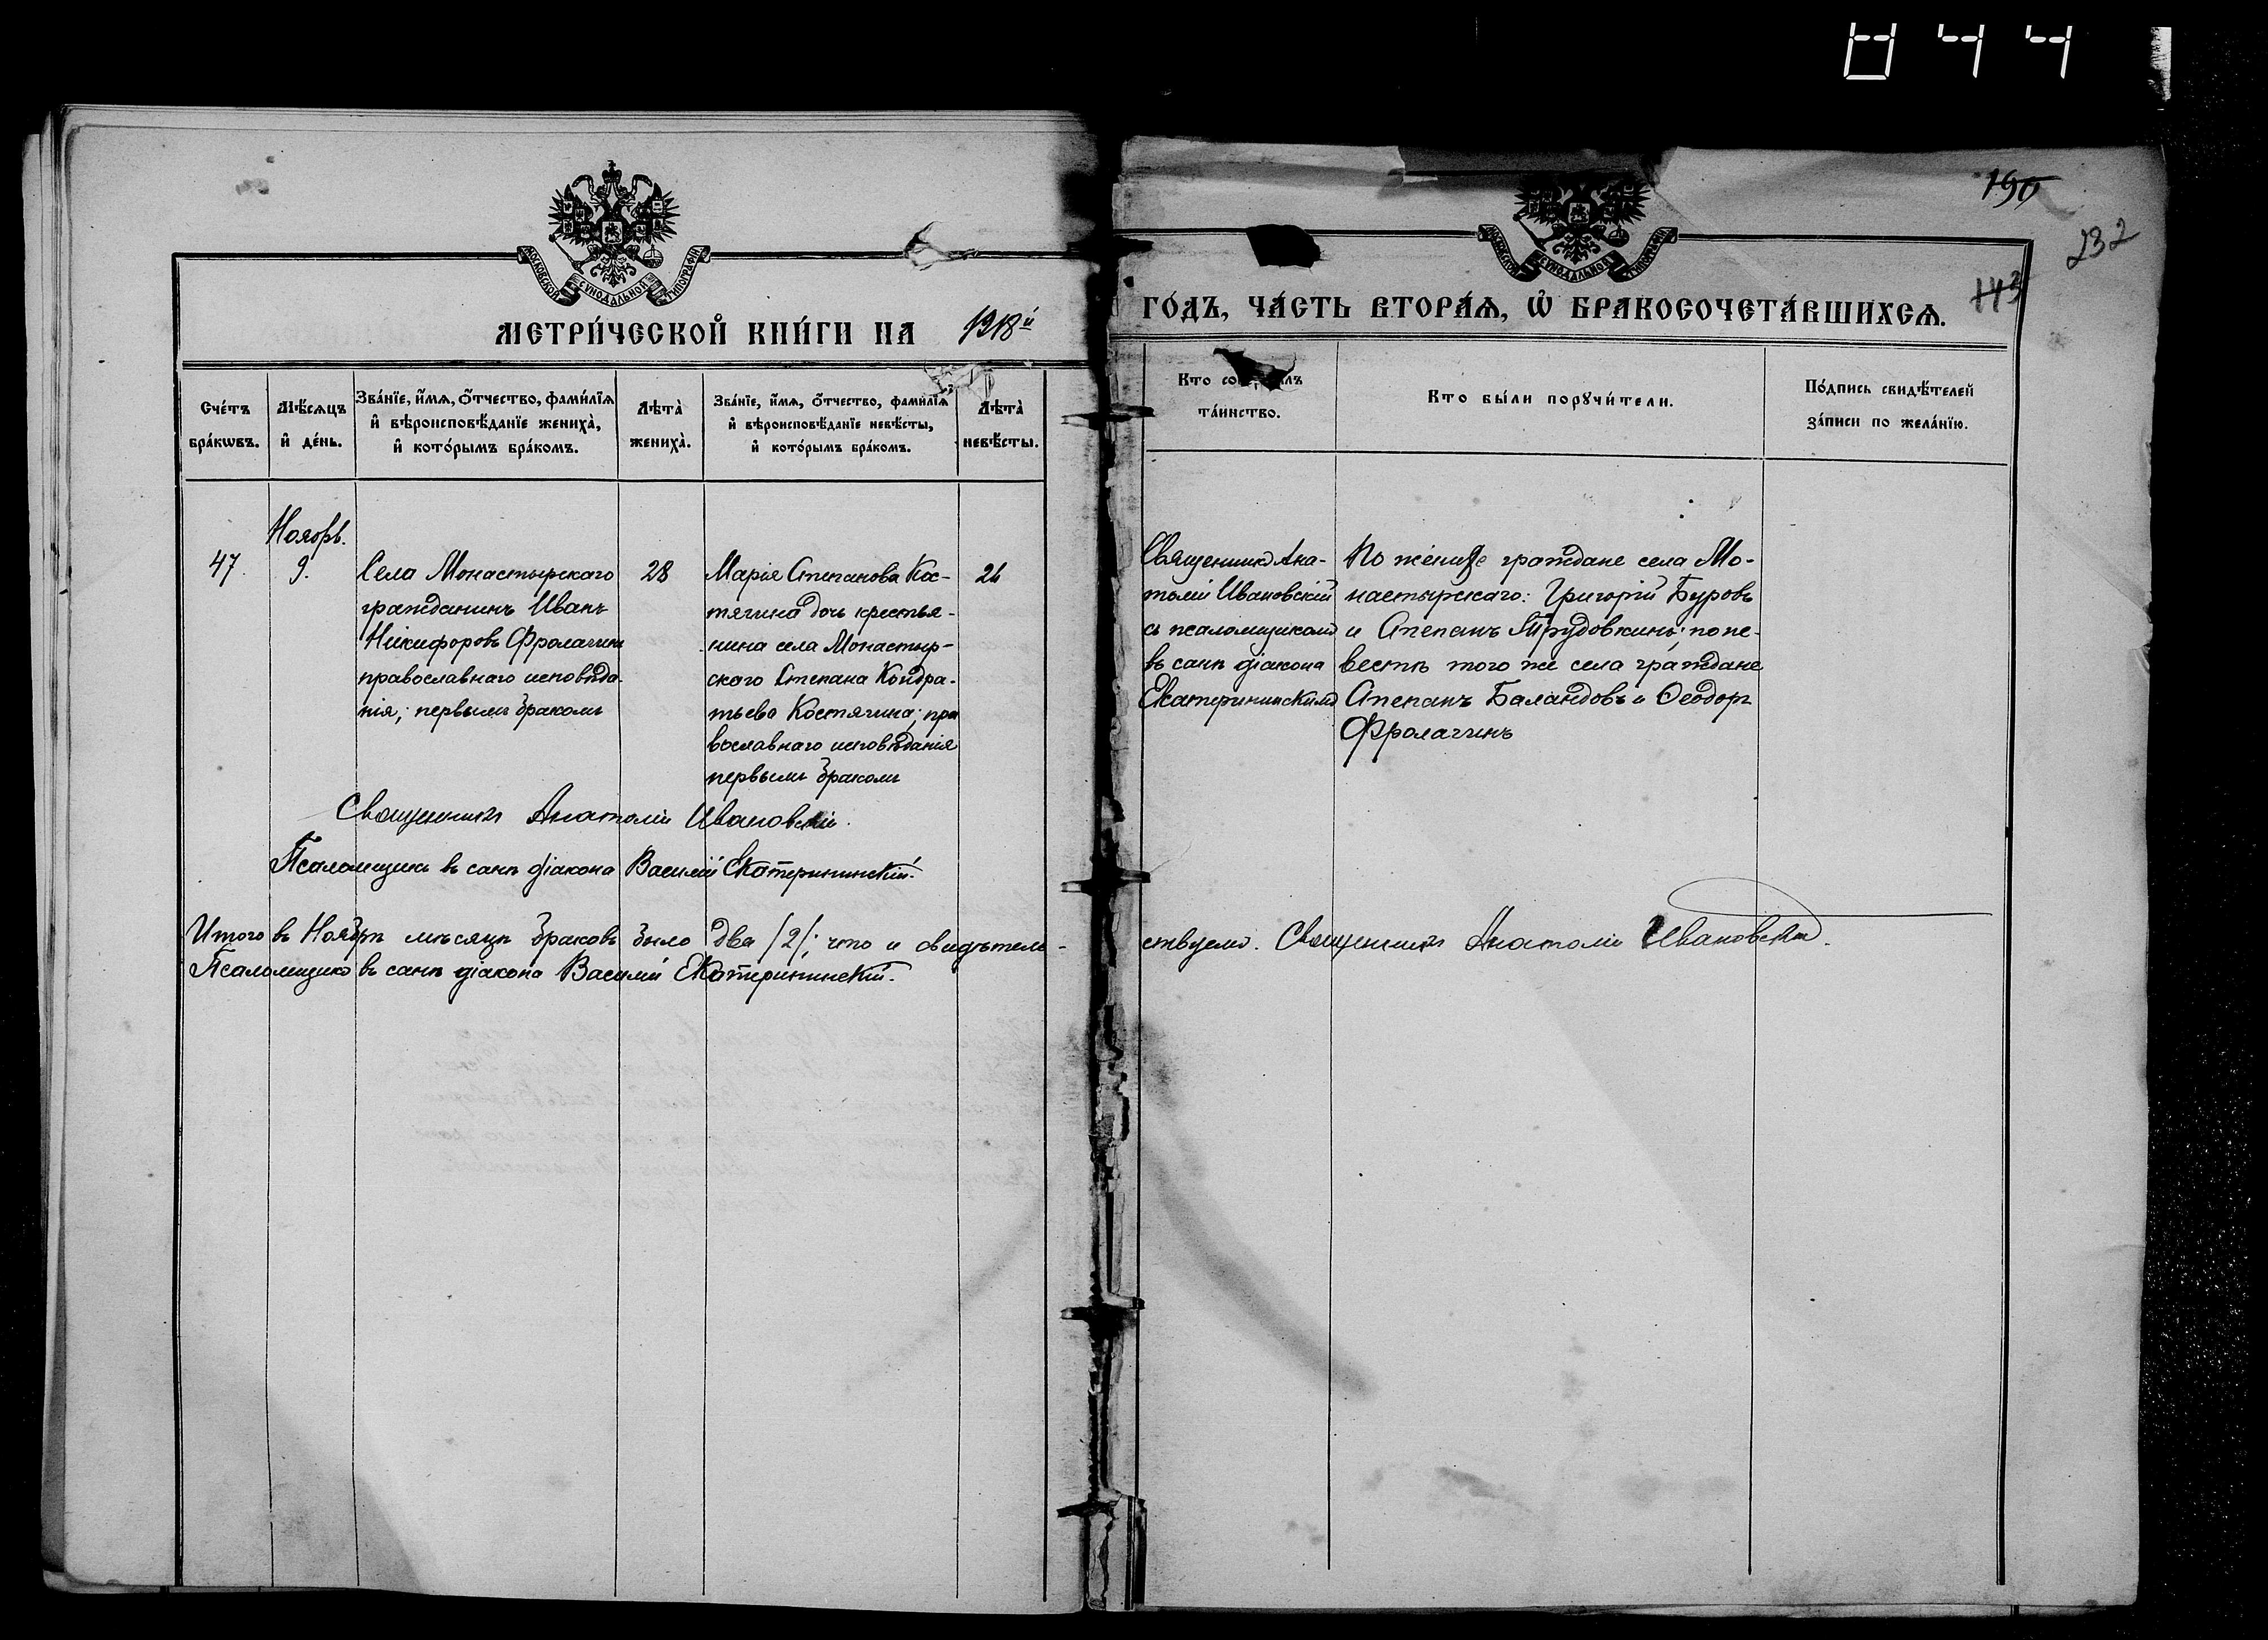 044
190
232
143
МОСКОВСКОЙ СУНОДАЛЬНОЙ ТИПОГРАФІИ
МОСКОВСКОЙ СУНОДАЛЬНОЙ ТИПОГРАФІИ
МЕТРИ́ЧЕСКОЙ КНИ́ГИ НА 1918й
ГО́ДЪ, ЧА́СТЬ ВТОРА́Ѧ, Ѽ БРАКОСОЧЕТА́ВШИХСѦ.
Сче́тъ
бра́кѡвъ.
Мѣ́сѧцъ
и҆ де́нь.
Зва́нїе, и҆́мѧ, ѻ҆́тчество, фами́лїѧ
и҆ вѣроисповѣ́данїе жениха̀,
и҆ кото́рымъ бра́комъ.
Лѣта̀
жениха̀.
Зва́нїе, и҆́мѧ, ѻ҆́тчество, фами́лїѧ
и҆ вѣроисповѣ́данїе невѣ́сты,
и҆ кото́рымъ бра́комъ.
Лѣта̀
невѣ́сты.
Кто
та́инство.
Кто бы́ли порꙋчи́тели.
По́дпись свидѣ́телей
за́писи по жела́нїю.
47.
Ноябрь.
9.
Села Монастырскаго
гражданинъ Иванъ
Никифоровъ Фролагинъ
православнаго исповѣда-
нія; первымъ бракомъ
28
Марія Степанова Кос-
тягина дочь крестья-
нина села Монастыр-
скаго Степана Кондра-
тьева Костягина; пра
вославнаго исповѣданія
первымъ бракомъ
Священникъ Ана-
толій Ивановскій
съ псаломщикомъ
въ санѣ діакона
Екатерининскимъ
По женихе граждане села Мо-
настырскаго: Григорій Буровъ
и Степанъ Трудовкинъ; по не-
вестѣ того же села граждане
Степанъ Баландовъ и Ѳеодоръ
Фролагинъ
Священникъ Анатолій Ивановскій.
Псаломщикъ въ санѣ діакона Василій Екатерининскій.
Итого въ Ноябрѣ мѣсяцѣ браковъ было два /2/; что и свидѣтель-
ствуемъ. Священникъ Анатолій Ивановскій.
Псаломщикъ въ санѣ діакона Василій Екатерининскій.